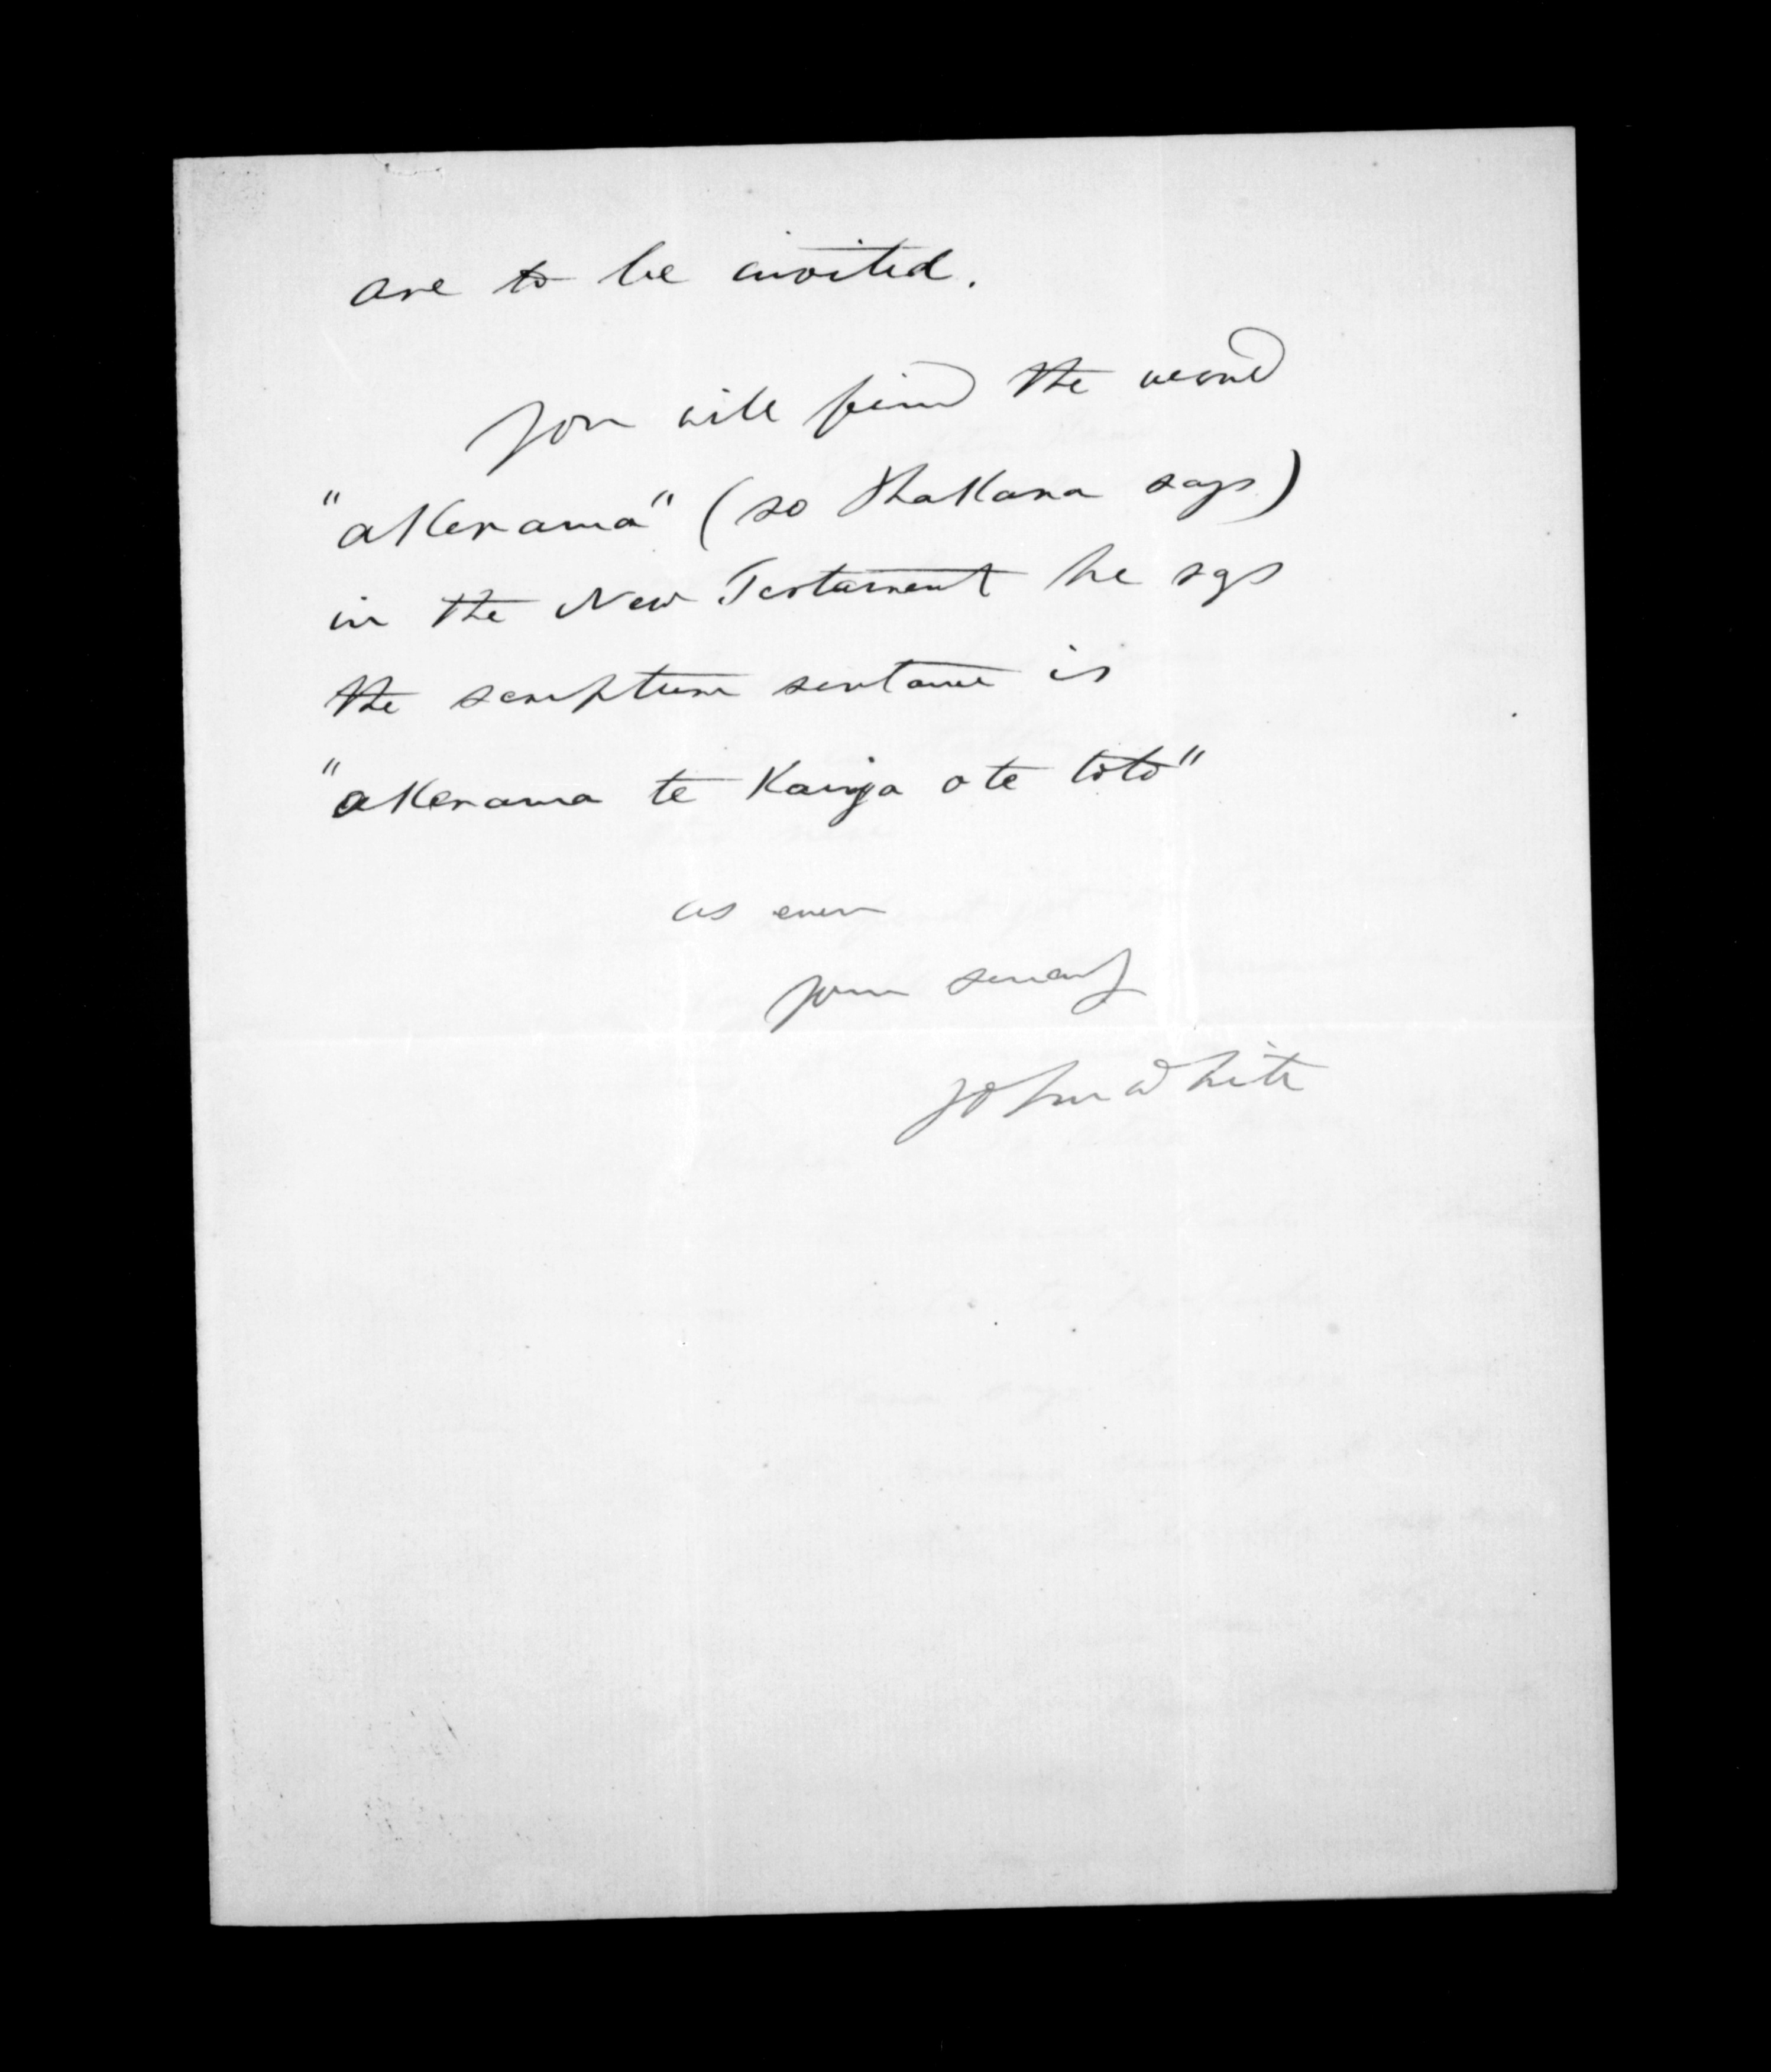 are to be invited.
You will find the word
"akerama" (so Hakana says)
in the New Testament he sys
the scripture sentance is
"akerama te Kainga o te toto"
as ever
your servant
John White